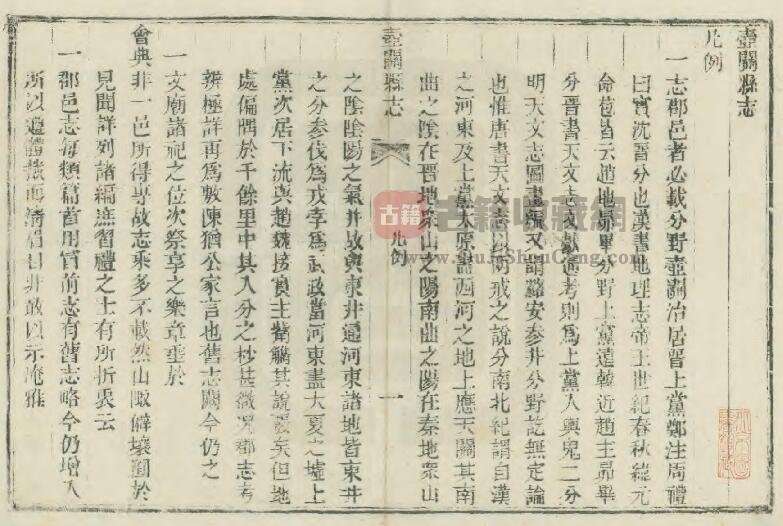 壺關縣志
凡例
一志郡邑者必載分野壺關治居晉上黨鄭注周禮
曰實沈晉分也漢書地理志帝王世紀春秋緯元
命苞皆云趙地昴畢分野上黨遠韓近趙主昴畢
分晉書天文志文獻通考則為上黨入輿鬼二分
明天文志圖書編又謂潞安參井分野訖無定論
也惟唐書天文志以兩戒之說分南北紀謂自漢
之河東及上黨太原盡西河之地上應天關其南
曲之陰在晉地眾山之陽南曲之陽在秦地眾山
壺關縣志
凡例
一
之陰陰陽之氣并故與東井通河東諸地皆東井
之分參伐為戎李為武政當河東盡大夏之墟上
黨次居下流與趙魏接實主觜觿其說覈矣但地
處偏隅於千餘里中其入分之杪甚微況郡志考
辨極詳再為敷陳猶公家言也舊志闕今仍之
一文廟諸祀之位次祭享之樂章垂於
會典非一邑所得專故志乘多不載然山陬僻壤罰於
見聞詳列諸編庶習禮之士有所折衷云
一郡邑志每類篇首用官前志有舊志略今仍增入
所以遵體裁而清眉目非敢以示淹雅
古籍
古籍收藏網